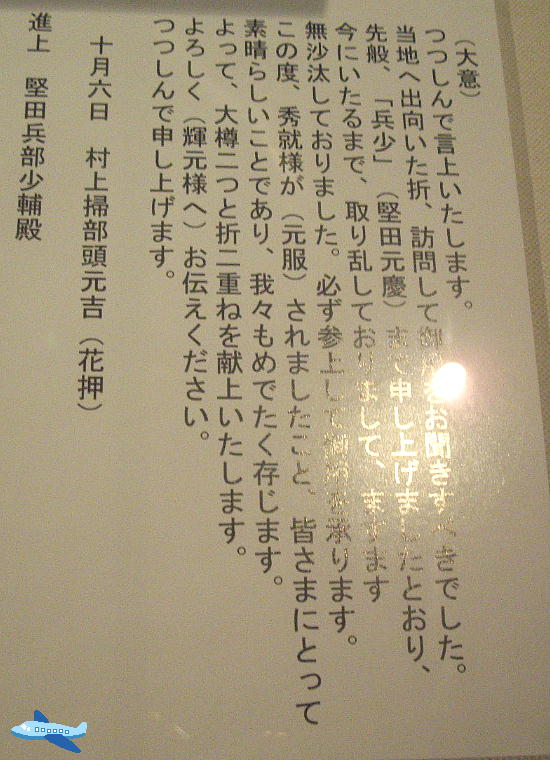 （大意）
つつしんで言上いたします。
当地へ出向いた折、訪問して御をお聞きすべきでした。
先般、「兵少」（堅田元慶）まで申し上げましたとおり、
今にいたるまで、取り乱しておりまして、ますます
無沙汰しておりました。必ず参上して承ります。
この度、秀就様が（元服）されましたこと、皆さまにとって
素晴らしいことであり、我々もめでたく存じます。
よって、大樽二つと折二重ねを献上いたします。
よろしく（輝元様へ）お伝えください。
つつしんで申し上げます。
十月六日　村上掃部頭元吉（花押）
進上　堅田兵部少輔殿